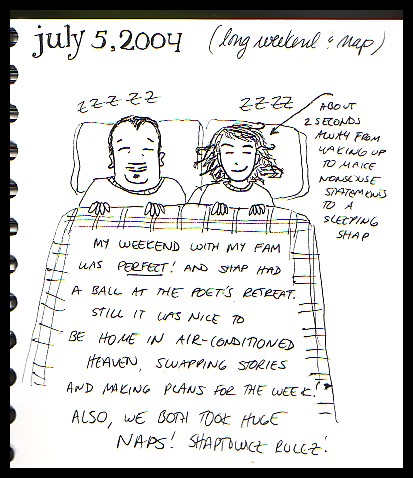 july 5, 2004 (long weekend & nap)
zzzzz
zzzz
ABOUT
2 SECONDS
AWAY FROM
WAKING UP
TO MAKE
NONSENSE
STATEMENTS
TO A
SLEEPING
SHAP
MY WEEKEND WITH MY FAM
WAS PERFECT! AND SHAP HAD
A BALL AT THE POET'S RETREAT.
STILL IT WAS NICE TO
BE HOME IN AIR-CONDITIONED
HEAVEN, SWAPPING STORIES
AND MAKING PLANS FOR THE WEEK!
ALSO, WE BOTH TOOK HUGE
NAPS! RULEZ!